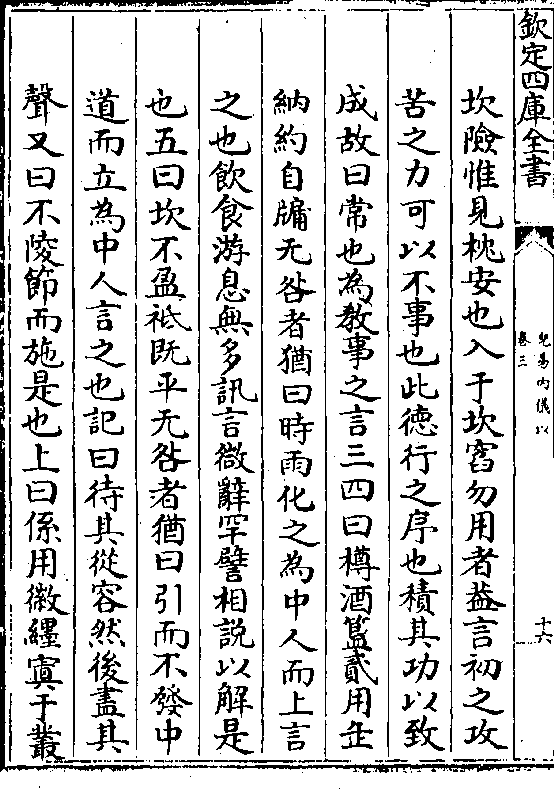 欽定四庫全書
兒易內儀以
卷三
十六
坎險惟見枕安也入于坎窞勿用者益言初之攻
苦之力可以不事也此德行之序也積其功以致
成故曰常也為教事之言三四曰樽酒簋貳用缶
納約自牖无咎者猶曰時雨化之為中人而上言
之也飲食游息無多訊言微辭罕譬相説以解是
也五曰坎不盈祗既平无咎者猶曰引而不發中
道而立為中人言之也記曰待其從容然後盡其
聲又曰不陵節而施是也上曰係用徽纆寘于叢